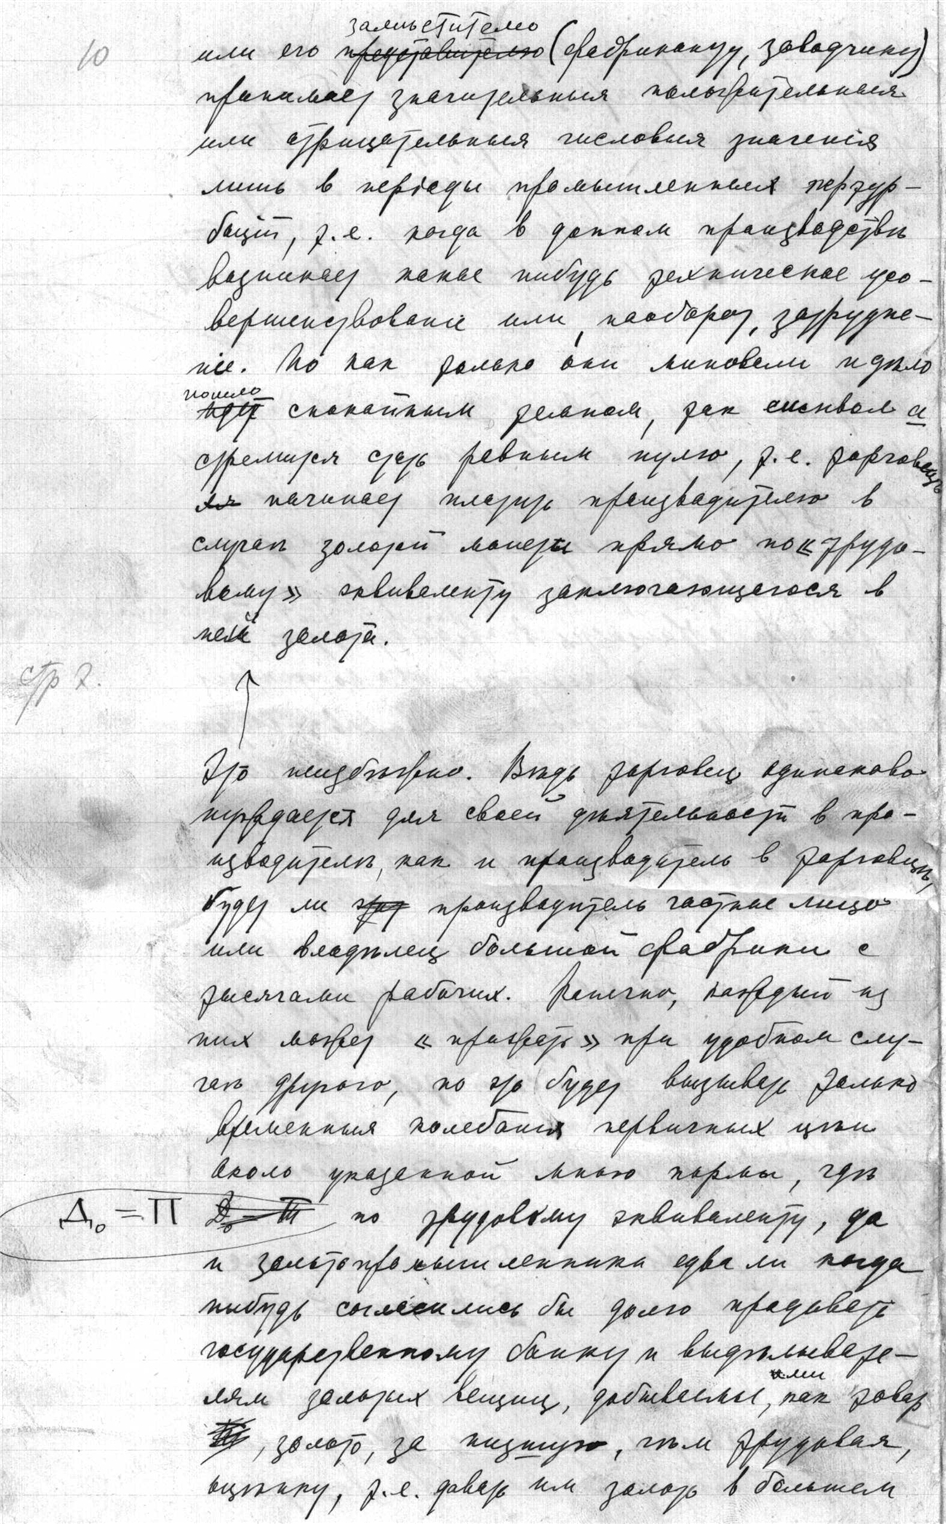 10
замѣстителю
или его представителю (фабриканту, заводчику)
принимает значительныя положительныя
или отрицательныя числовыя значенія
лишь в періоды промышленных пертур-
бацій, т.е. когда в данном производствѣ
возникает какое нибудь техническое усо-
вершенствованіе или, наоборот, затрудне-
ніе. Но как только они миновали и дѣло
пошло
идет спокойным ходом, так символ а
стремится стать равным нулю, т.е. торговец
начинает платить производителю в
случаѣ золотой монеты прямо по «трудо-
вому» эквиваленту заключающегося в
ней золота.
стр 7.
Это неизбѣжно. Вѣдь торговец одинаково
нуждается для своей дѣятельности в про-
изводителѣ, как и производитель в торговцѣ,
будет ли производитель частное лицо
или владѣлец большой фабрики с
тысячами рабочих. Конечно, каждый из
них может «прижать» при удобном слу-
чаѣ другого, но это будет вызывать только
временныя колебанія первичных цѣн
около указанной мною нормы, гдѣ
До = П До = П по трудовому эквиваленту, да
и золотопромышленники едва ли когда
нибудь согласились бы долго продавать
государственному банку и выдѣлывате-
лям золотых вещиц, добываемое
ими
, как товар
, золото, за низшую, чѣм трудовая,
оцѣнку, т.е. давать им золото в большем